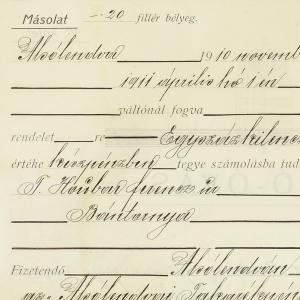 Másolat — 20 fillér bélyeg.
Alsólendva 1910 novemb
1911 április hó 1.én
váltónál fogva
rendelet re Egyszáz kilenc
értéke készpénzben tegye számolásba tud
T. Ferencz úr
Bántornya
Fizetendő Alsólendván
az Alsólendvai Takarékpén